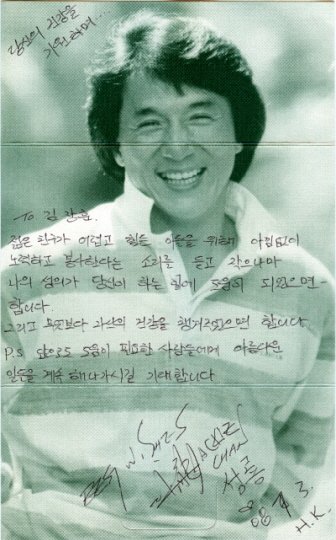 당신의 건강을
기원하며....
To 김 장훈.
젊은 친구가 어렵고 힘든 이웃을 위해 아낌없이
노력하고 봉사한다는 소리를 듣고 작으나마
나의 성의가 당신이 하는 일에 도움이 되었으면
합니다.
그리고 무엇보다 자신의 건강을 챙겨주었으면 합니다.
P.S 앞으로도 도움이 필요한 사람들에게 아름다운
일들을 계속 해나가시길 기대합니다
JACKIE
CHAN
성룡
H.K.